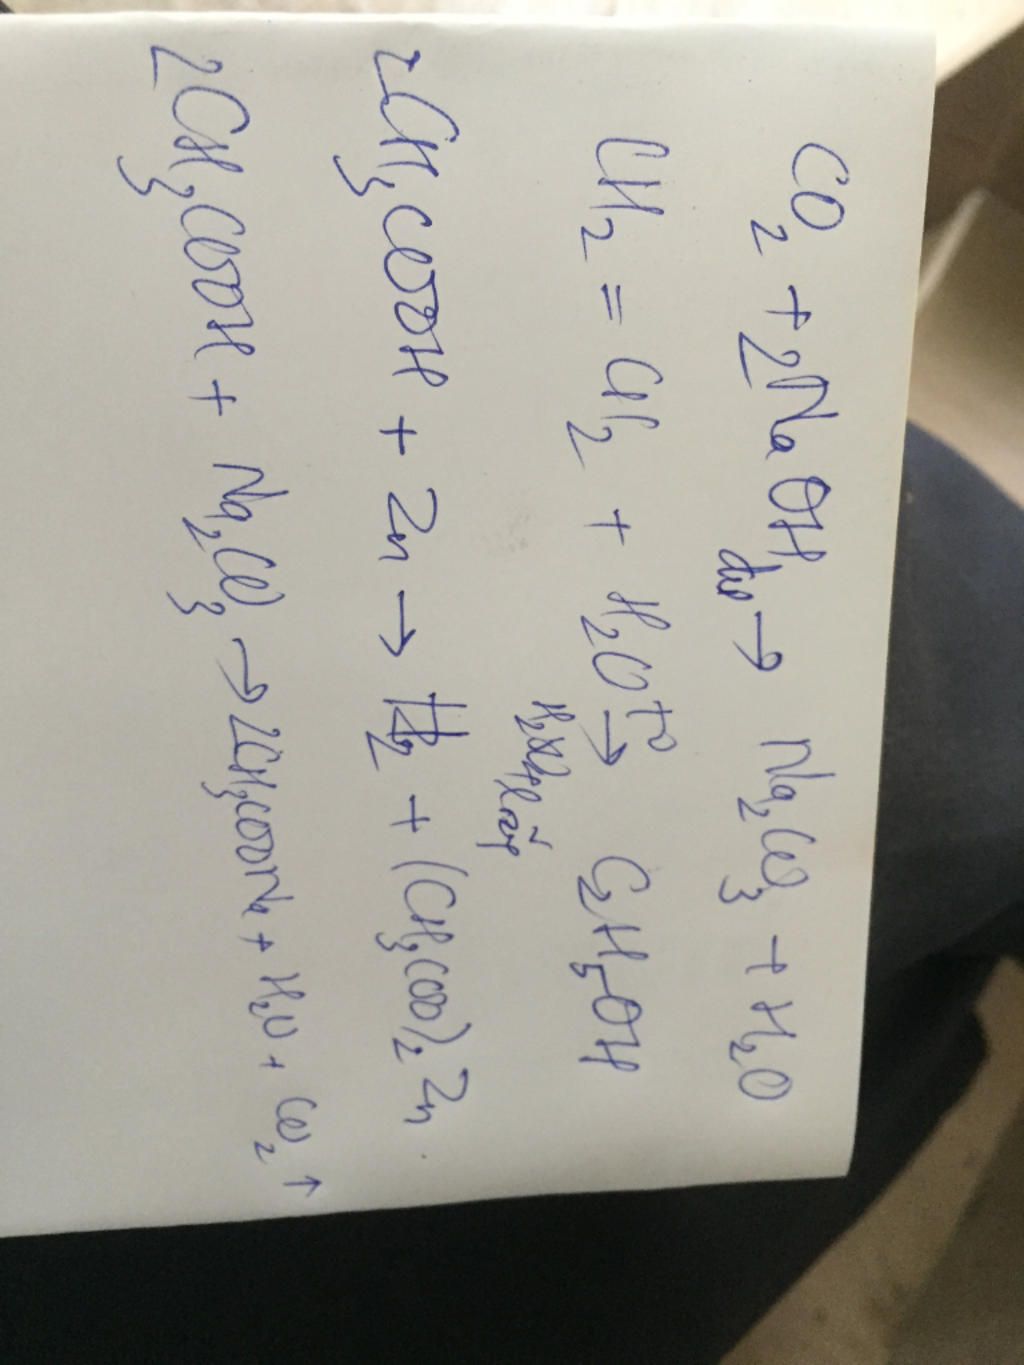 CO₂ + 2NaOH dư → Na₂CO₃ + H₂O
CH₂ = CH₂ + H₂O t⁰ → H₂SO₄ loãng C₂H₅OH
2CH₃COOH + Zn → H₂ + (CH₃COO)₂Zn.
2CH₃COOH + Na₂CO₃ → 2CH₃COONa + H₂O + CO₂ ↑